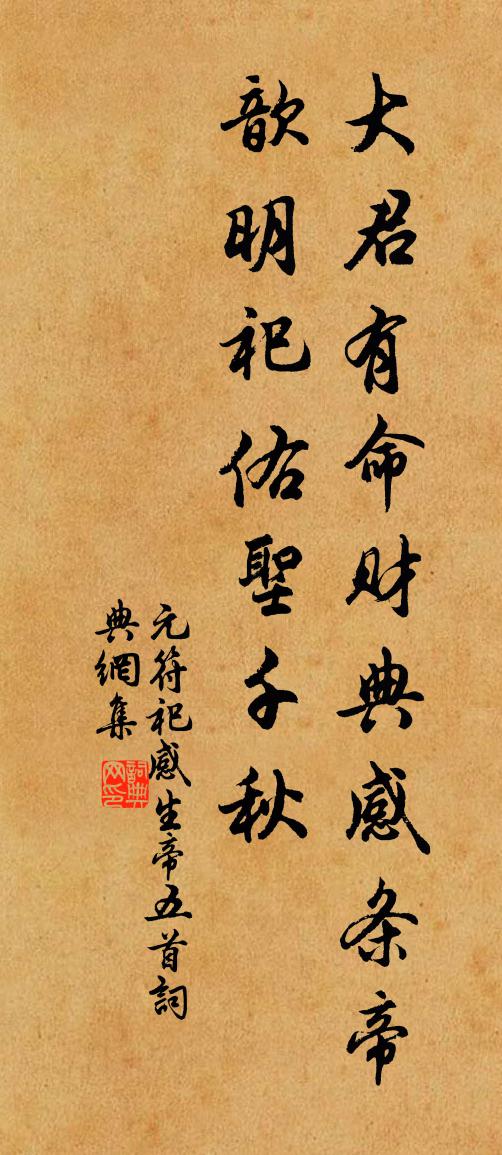 大君有命财典感条帝
歆明祀佑聖千秋
元符祀感生帝五首詞
典網集
詞典网印